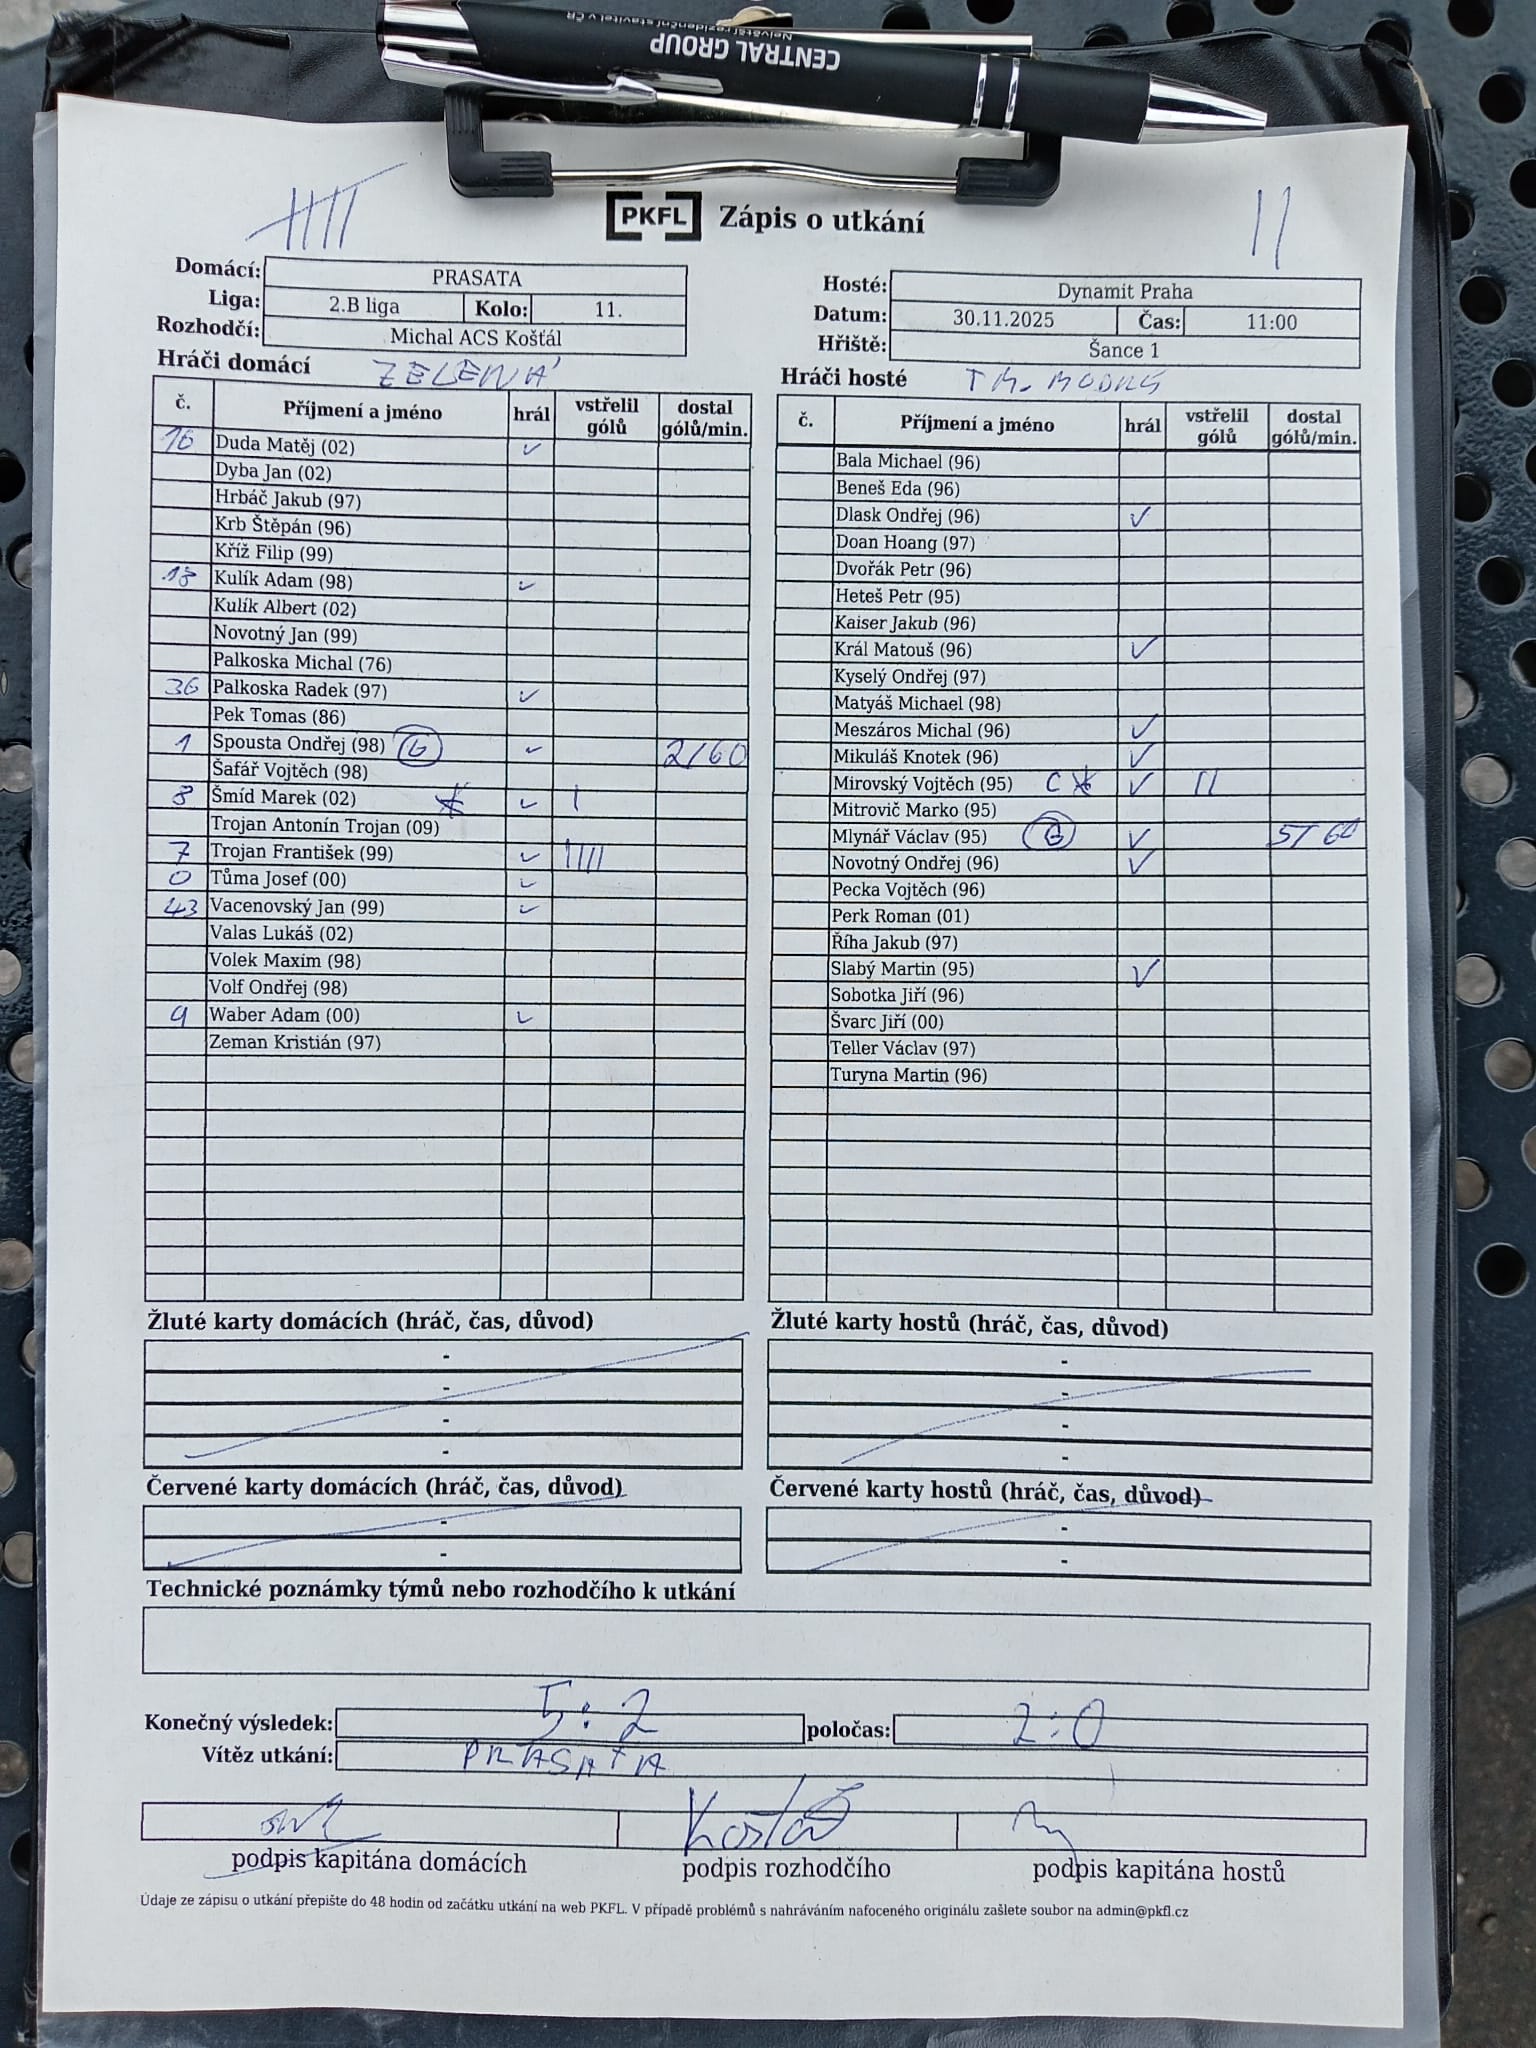 CENTRAL GROUP
Největší rezidenční stavitel v ČR
PKFL Zápis o utkání
Domácí: PRASATA
Liga: 2.B liga Kolo: 11.
Rozhodčí: Michal ACS Košťál
Hosté: Dynamit Praha
Datum: 30.11.2025 Čas: 11:00
Hřiště: Šance 1
Hráči domácí ZELENÁ
č. Příjmení a jméno hrál vstřelil gólů dostal gólů/min.
16 Duda Matěj (02) ✓
Dyba Jan (02)
Hrbáč Jakub (97)
Krb Štěpán (96)
Kříž Filip (99)
Kulík Adam (98) ✓
Kulík Albert (02)
Novotný Jan (99)
Palkoska Michal (76)
36 Palkoska Radek (97) ✓
Pek Tomas (86)
1 Spousta Ondřej (98) G ✓ 2/60
Šafář Vojtěch (98)
8 Šmíd Marek (02) ✓ I
Trojan Antonín Trojan (09)
7 Trojan František (99) ✓ IIII
0 Tůma Josef (00) ✓
43 Vacenovský Jan (99) ✓
Valas Lukáš (02)
Volek Maxim (98)
Volf Ondřej (98)
9 Waber Adam (00) ✓
Zeman Kristián (97)
Hráči hosté TM. MODRÝ
č. Příjmení a jméno hrál vstřelil gólů dostal gólů/min.
Bala Michael (96)
Beneš Eda (96)
Dlask Ondřej (96) ✓
Doan Hoang (97)
Dvořák Petr (96)
Heteš Petr (95)
Kaiser Jakub (96)
Král Matouš (96) ✓
Kyselý Ondřej (97)
Matyáš Michael (98)
Meszáros Michal (96) ✓
Mikuláš Knotek (96) ✓
Mirovský Vojtěch (95) C ✓ II
Mitrovič Marko (95)
Mlynář Václav (95) G ✓ 5/60
Novotný Ondřej (96) ✓
Pecka Vojtěch (96)
Perk Roman (01)
Říha Jakub (97)
Slabý Martin (95) ✓
Sobotka Jiří (96)
Švarc Jiří (00)
Teller Václav (97)
Turyna Martin (96)
Žluté karty domácích (hráč, čas, důvod)
-
-
-
-
Žluté karty hostů (hráč, čas, důvod)
-
-
-
-
Červené karty domácích (hráč, čas, důvod)
-
-
Červené karty hostů (hráč, čas, důvod)
-
-
Technické poznámky týmů nebo rozhodčího k utkání
Konečný výsledek: 5:2 poločas: 2:0
Vítěz utkání: PRASATA
Košťál
podpis kapitána domácích podpis rozhodčího podpis kapitána hostů
Údaje ze zápisu o utkání přepište do 48 hodin od začátku utkání na web PKFL. V případě problémů s nahráváním nafoceného originálu zašlete soubor na admin@pkfl.cz